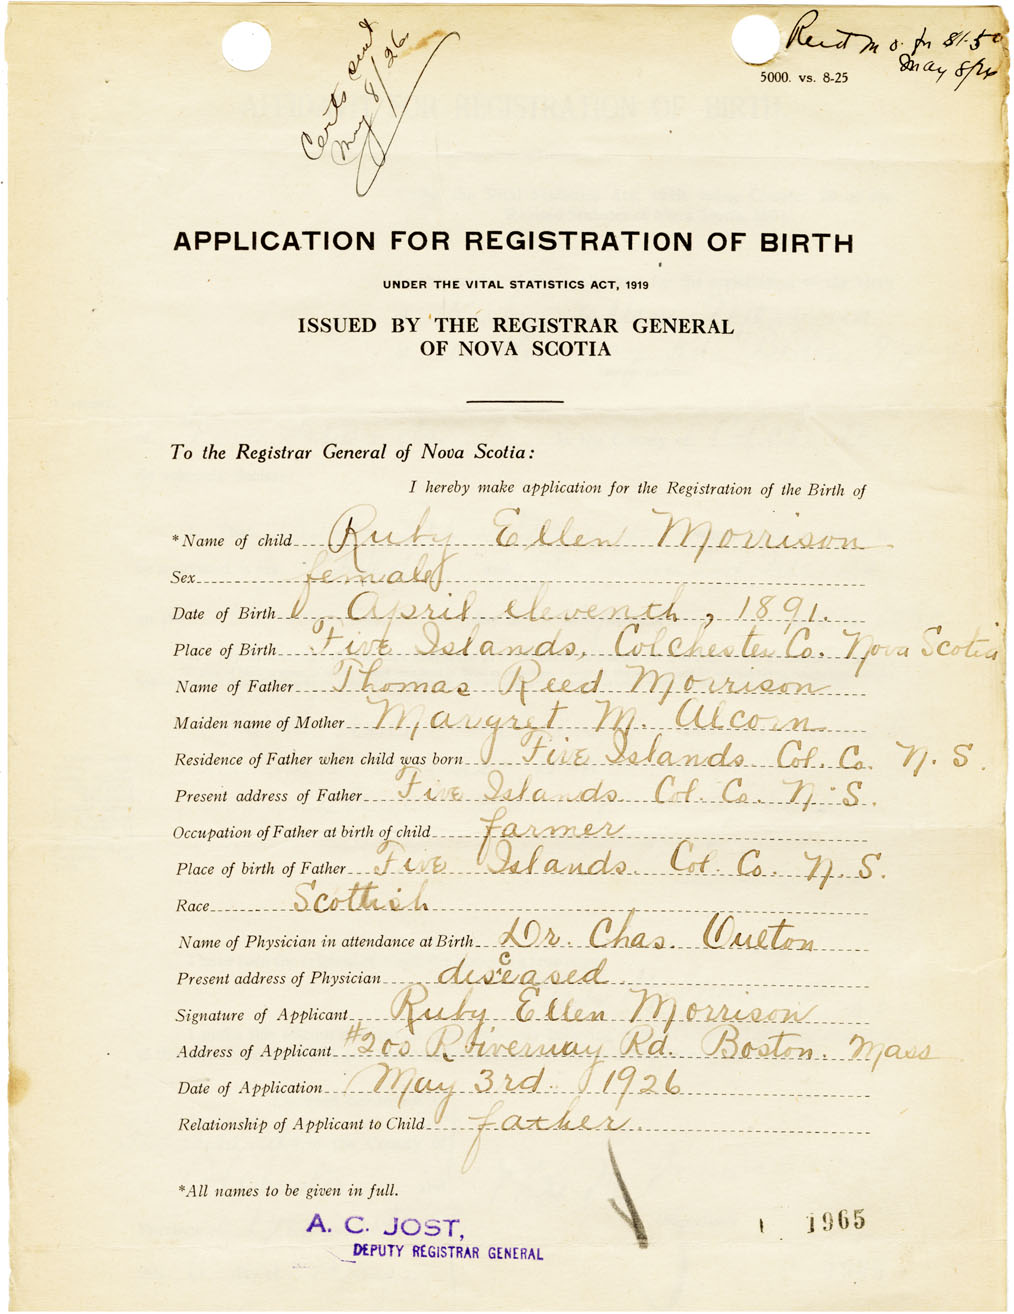 Certs sent
May 8/26
Recd m o. for $1.50
May 8/26
5000. vs. 8-25
APPLICATION FOR REGISTRATION OF BIRTH
UNDER THE VITAL STATISTICS ACT, 1919
ISSUED BY THE REGISTRAR GENERAL
OF NOVA SCOTIA
To the Registrar General of Nova Scotia:
I hereby make application for the Registration of the Birth of
*Name of child Ruby Ellen Morrison
Sex female
Date of Birth April eleventh, 1891.
Place of Birth Five Islands, Colchester Co. Nova Scotia
Name of Father Thomas Reed Morrison
Maiden name of Mother Margret M. Alcorn
Residence of Father when child was born Five Islands Col. Co. N. S.
Present address of Father Five Islands Col. Co. N. S.
Occupation of Father at birth of child farmer
Place of birth of Father Five Islands. Col. Co. N. S.
Race Scottish
Name of Physician in attendance at Birth Dr. Chas.
Present address of Physician disceased
Signature of Applicant Ruby Ellen Morrison
Address of Applicant #200 Riverway Rd. Boston. Mass
Date of Application May 3rd. 1926
Relationship of Applicant to Child father.
*All names to be given in full.
A. C. JOST,
DEPUTY REGISTRAR GENERAL
1965